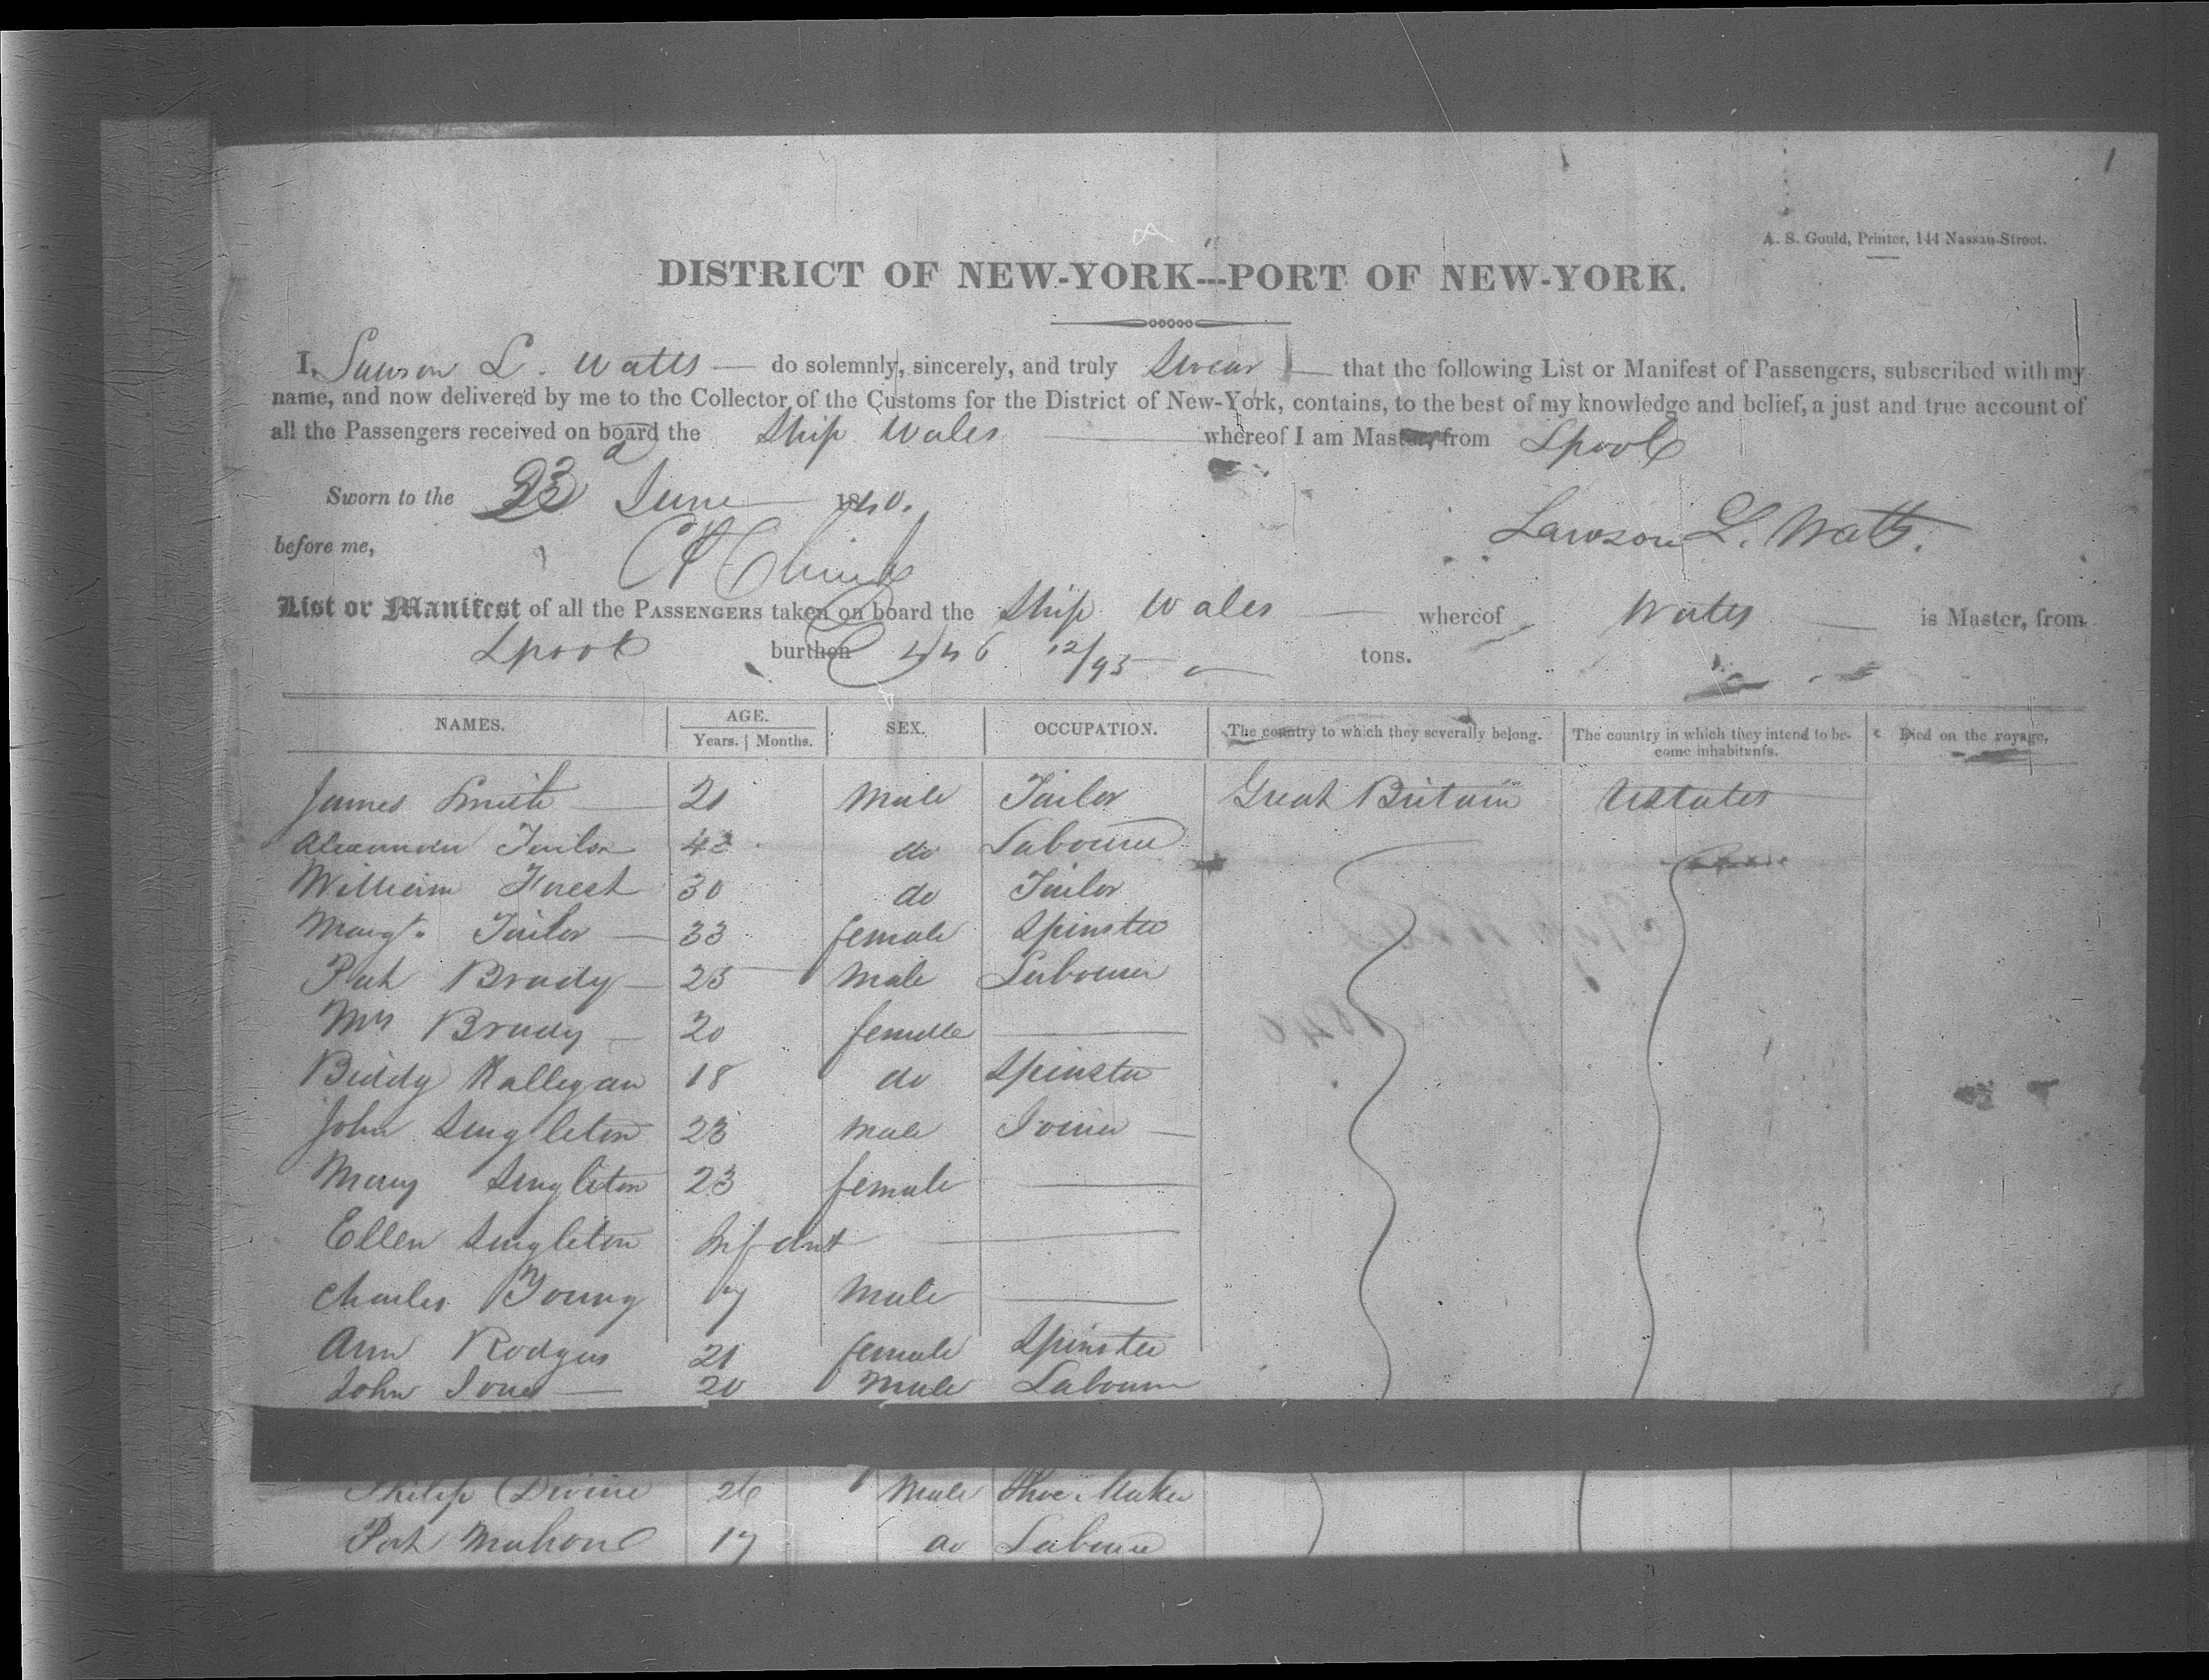 1
A. S. Gould, Printer, 144 Nassau-Street.
DISTRICT OF NEW-YORK---PORT OF NEW-YORK.
I, Lawson L. Watts — do solemnly, sincerely, and truly Swear — that the following List or Manifest of Passengers, subscribed with my
name, and now delivered by me to the Collector of the Customs for the District of New-York, contains, to the best of my knowledge and belief, a just and true account of
all the Passengers received on board the Ship Wales whereof I am Master, from Lpool
Sworn to the 23d June 1840.
before me, Lawson L. Watts.
List or Manifest of all the PASSENGERS taken on board the Ship Wales — whereof Watts — is Master, from
Lpool burthen 446 12/95 tons.
NAMES. AGE. Years. | Months. SEX. OCCUPATION. The country to which they severally belong. The country in which they intend to become inhabitants. Died on the voyage.
James Smith — 21 Male Tailor Great Britain UStates
Alexander Tailor 42 do Labourer
William Forest 30 do Tailor
Margt. Tailor — 33 female Spinster
Pat Brady — 25 Male Labourer
Mrs Brady — 20 female —
Biddy Kallegan 18 do Spinster
John Singleton 23 Male Joiner —
Mary Singleton 23 female —
Ellen Singleton Infant —
Charles Young 17 Male —
Ann Rodgers 21 female Spinster
John Jones — 20 Male Labourer
Philip Divine 26 Male Shoe Maker
Pat Mahone 17 do Labourer